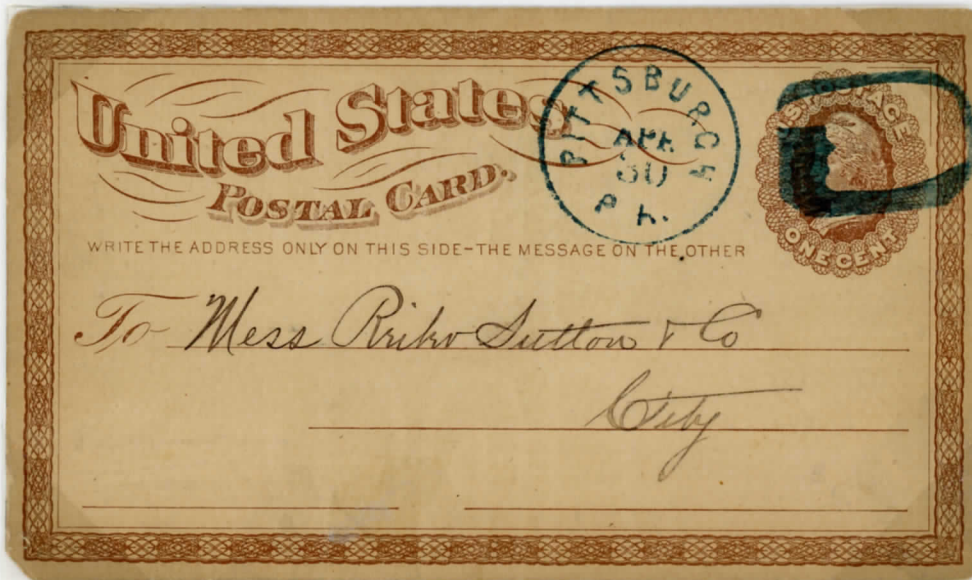 United States
POSTAL CARD.
PITTSBURGH
APR
30
PA.
U.S. POSTAGE
ONE CENT
WRITE THE ADDRESS ONLY ON THIS SIDE-THE MESSAGE ON THE OTHER
To Mess Sutton & Co
City